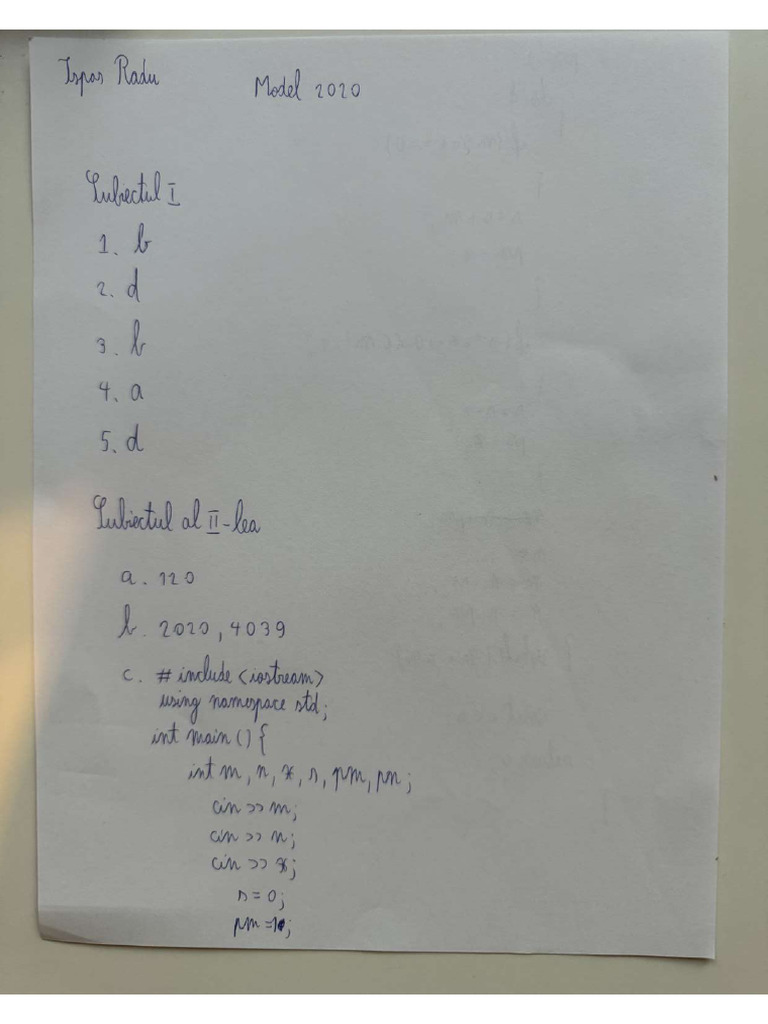 Ispas Radu
Model 2020
Subiectul I
1. b
2. d
3. b
4. a
5. d
Subiectul al II-lea
a. 120
b. 2020, 4039
c. # include <iostream>
using namespace std;
int main () {
int m, n, x, s, pm, pn;
cin >> m;
cin >> n;
cin >> x;
s = 0;
pm = 1;